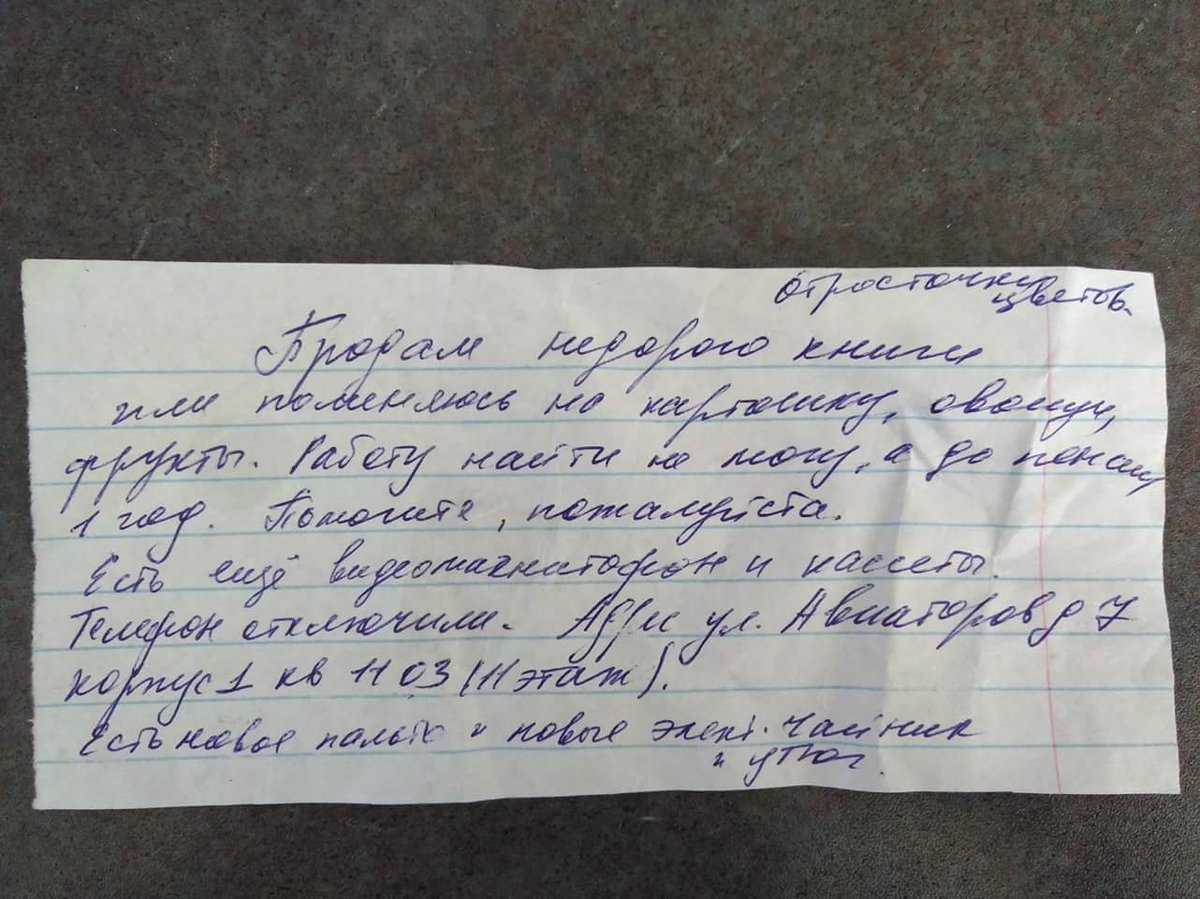 отросточки
цветов.
Продам недорого книги
или поменяюсь на картошку, овощи,
фрукты. Работу найти не могу, а до пенсии
1 год. Помогите, пожалуйста.
Есть ещё видеомагнитофон и кассеты.
Телефон отключили. Адрес ул. Авиаторов д 7
корпус 1 кв 1103 (11 этаж).
Есть новое пальто и новые элект. чайник
и утюг.